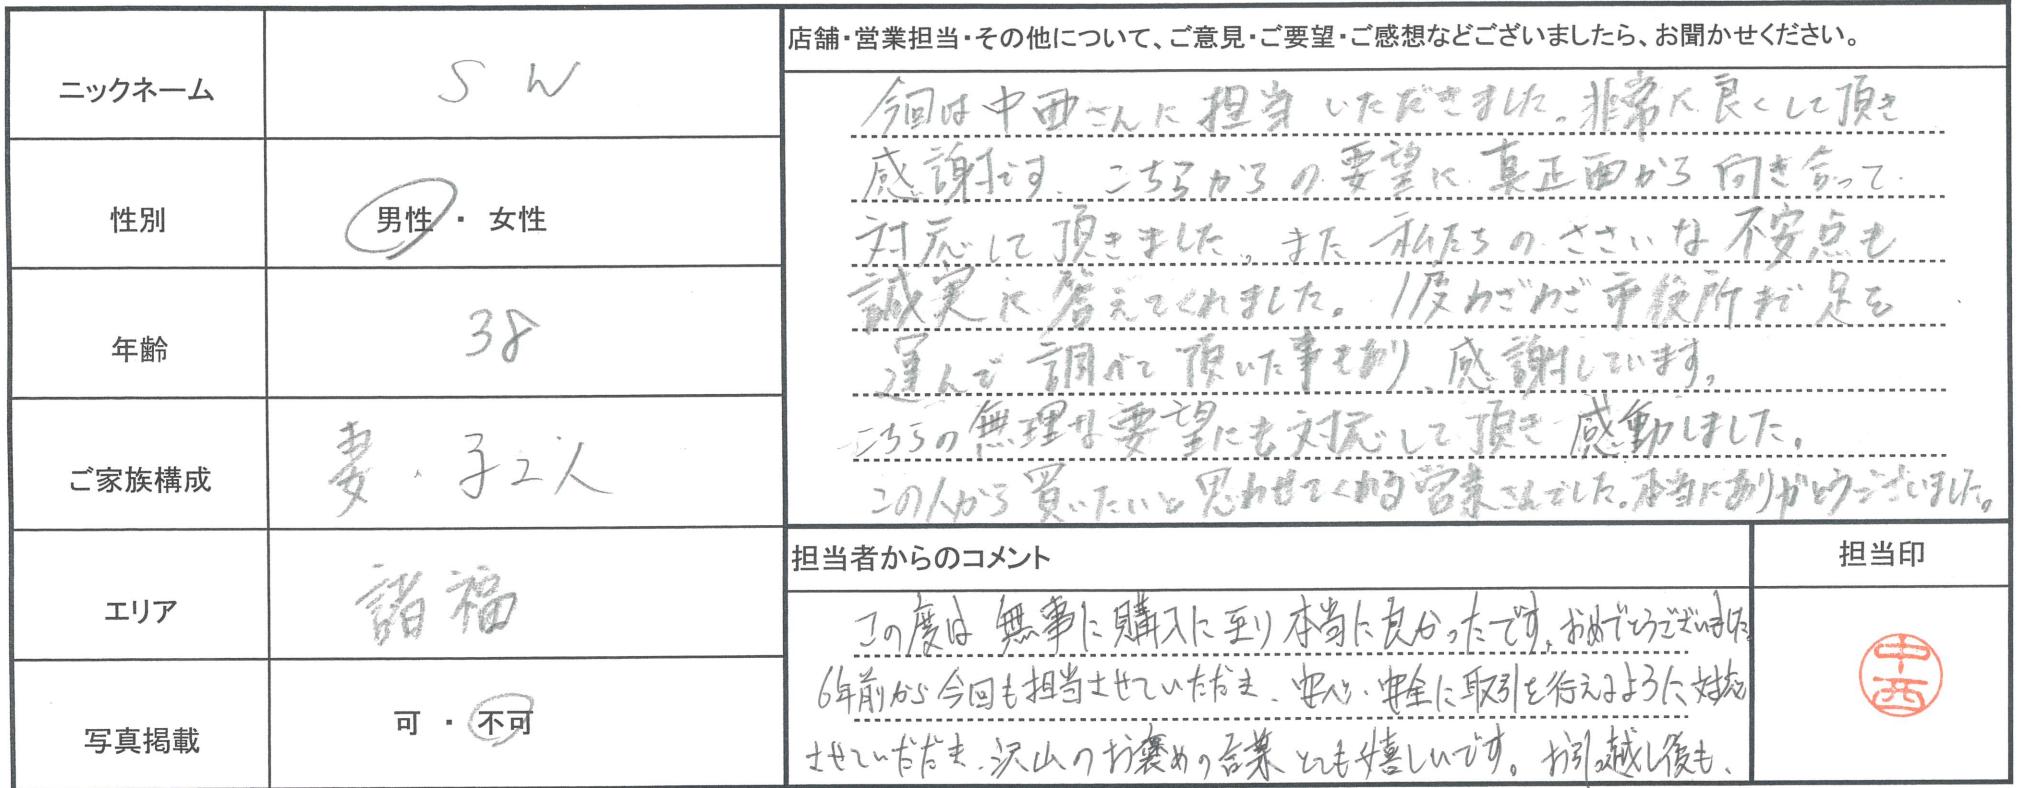 ニックネーム
SW
性別
男性・女性
年齢
38
ご家族構成
妻・子2人
エリア
諸福
写真掲載
可・不可
店舗・営業担当・その他について、ご意見・ご要望・ご感想などございましたら、お聞かせください。
今回は中西さんに担当いただきました。非常に良くして頂き
感謝です。こちらからの要望に真正面から向き合って
対応して頂きました。また私たちのささいな不安点も
誠実に答えてくれました。1度わざわざ市役所まで足を
運んで調べて頂いた事もあり、感謝しています。
こちらの無理な要望にも対応して頂き感動しました。
この人から買いたいと思わせてくれる営業さんでした。本当にありがとうございました。
担当者からのコメント
この度は無事に購入に至り本当に良かったです。おめでとうございました
6年前から今回も担当させていただき、安心・安全に取引を行えるように対応
させていただき、沢山のお褒めの言葉とても嬉しいです。お引っ越し後も、
担当印
中西